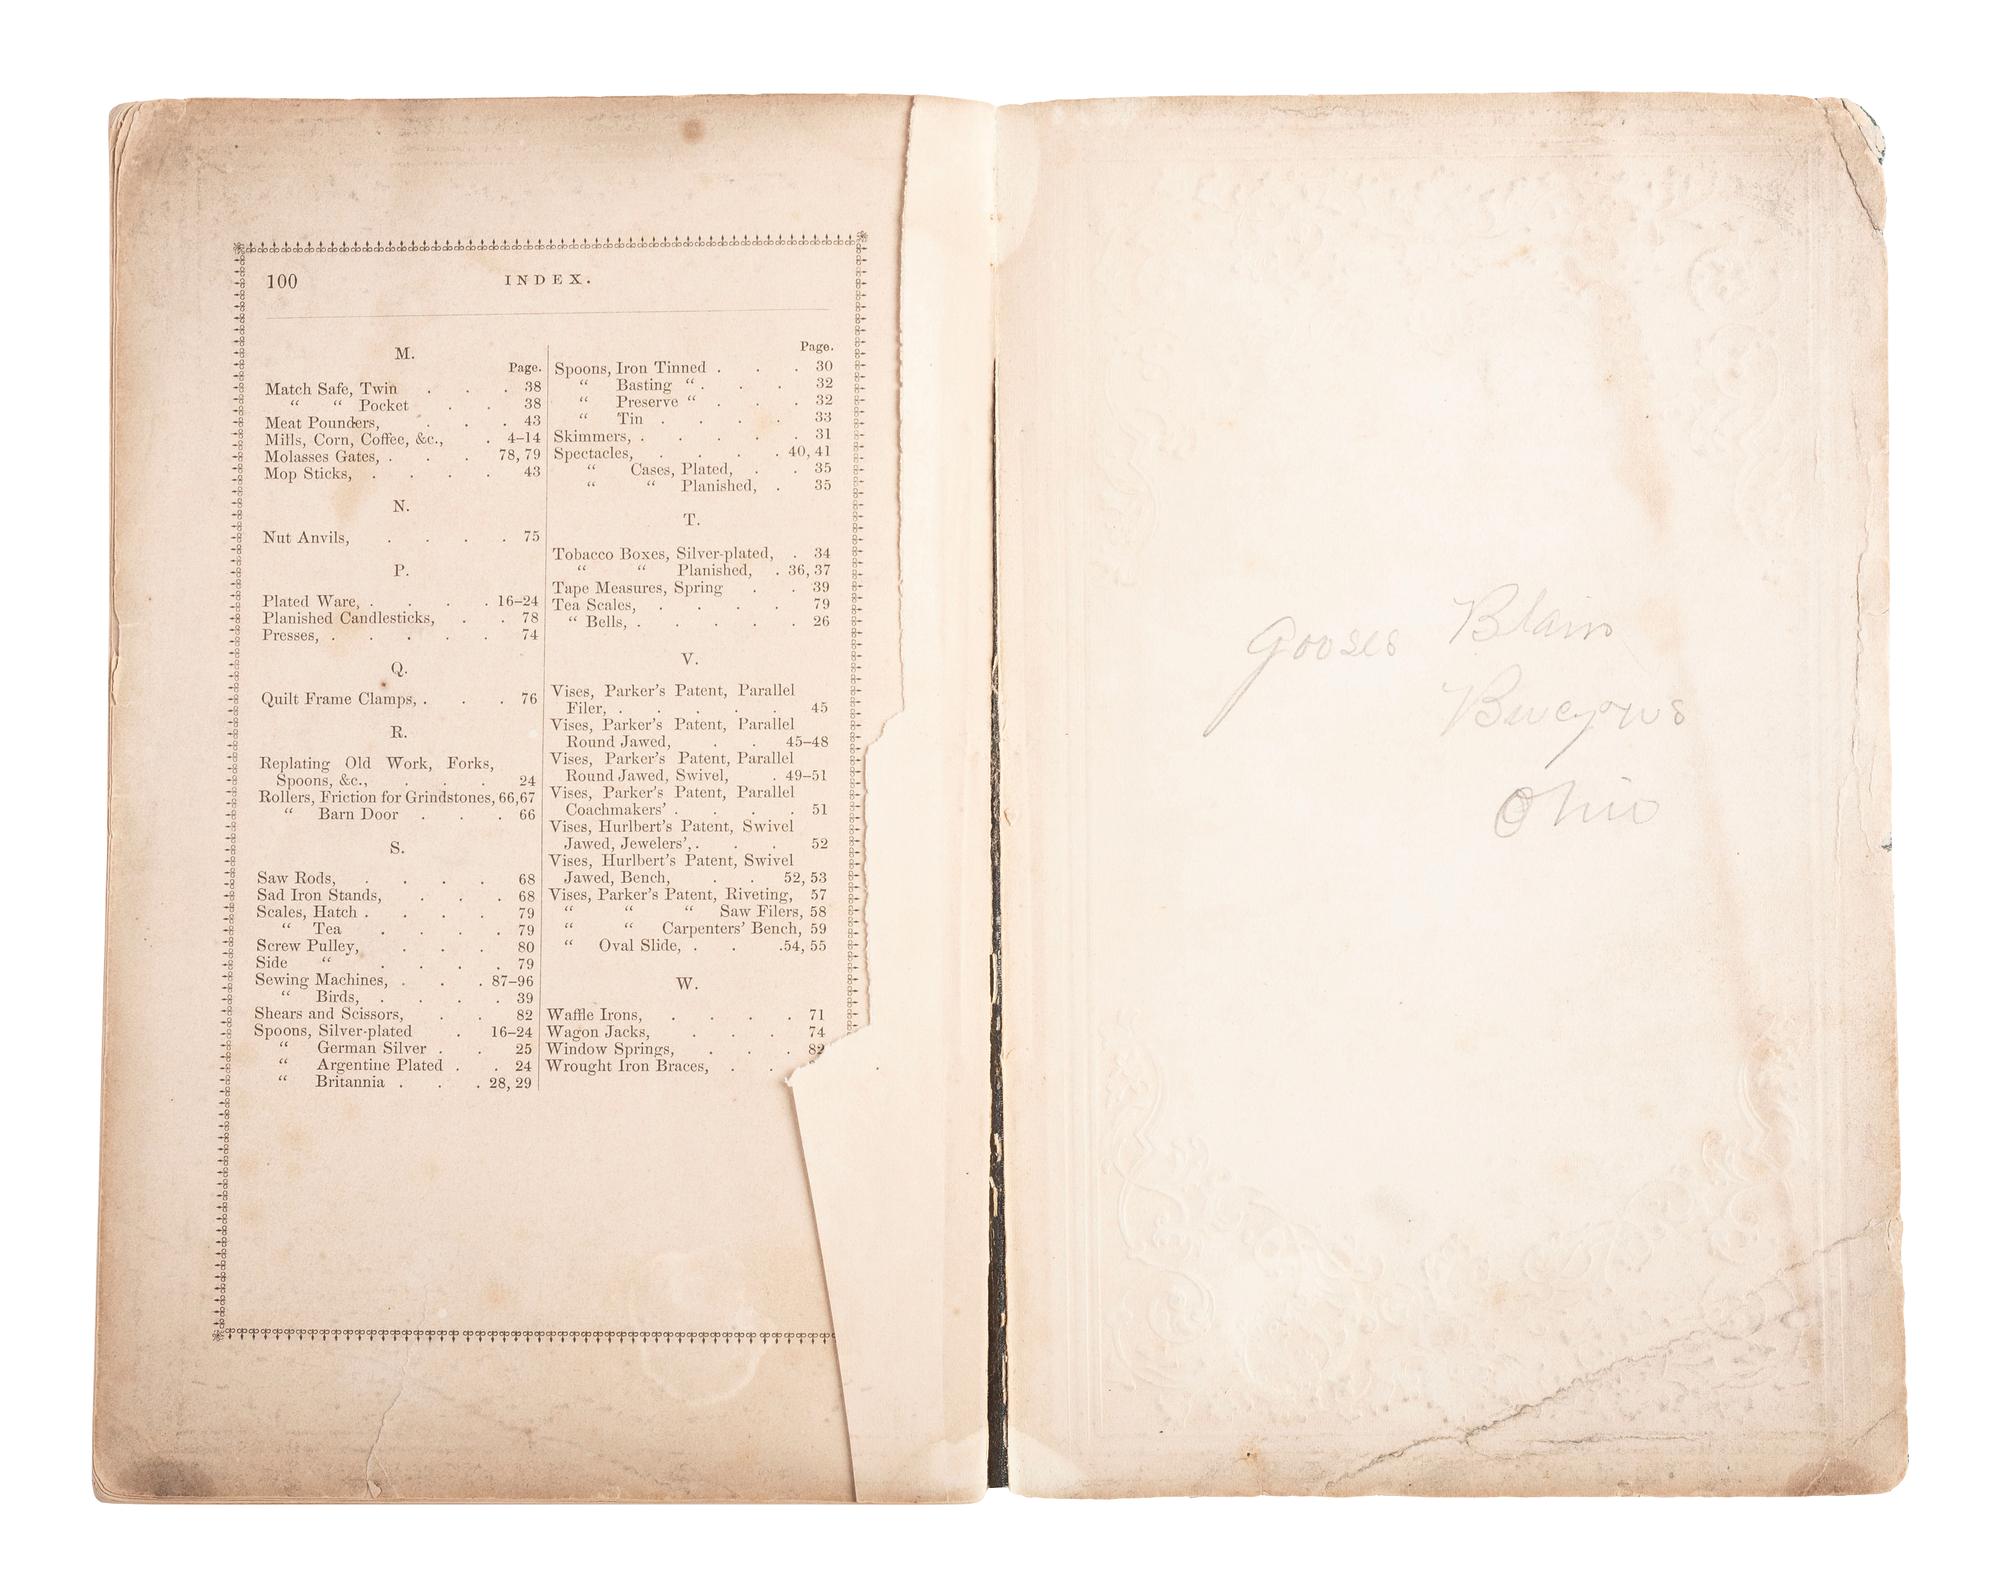 100 INDEX.
M.
Page.
Match Safe, Twin . . . 38
“ “ Pocket . . 38
Meat Pounders, . . . 43
Mills, Corn, Coffee, &c., . 4–14
Molasses Gates, . . . 78, 79
Mop Sticks, . . . . 43
N.
Nut Anvils, . . . . 75
P.
Plated Ware, . . . . 16–24
Planished Candlesticks, . . 78
Presses, . . . . . 74
Q.
Quilt Frame Clamps, . . . 76
R.
Replating Old Work, Forks,
Spoons, &c., . . . . 24
Rollers, Friction for Grindstones, 66,67
“ Barn Door . . . 66
S.
Saw Rods, . . . . 68
Sad Iron Stands, . . . 68
Scales, Hatch . . . . 79
“ Tea . . . . 79
Screw Pulley, . . . 80
Side “ . . . . 79
Sewing Machines, . . . 87–96
“ Birds, . . . . 39
Shears and Scissors, . . 82
Spoons, Silver-plated . 16–24
“ German Silver . . 25
“ Argentine Plated . . 24
“ Britannia . . . 28, 29
Page.
Spoons, Iron Tinned . . . 30
“ Basting “ . . . 32
“ Preserve “ . . . 32
“ Tin . . . . 33
Skimmers, . . . . . 31
Spectacles, . . . . 40, 41
“ Cases, Plated, . . 35
“ “ Planished, . 35
T.
Tobacco Boxes, Silver-plated, . 34
“ “ Planished, . 36, 37
Tape Measures, Spring . . 39
Tea Scales, . . . . 79
“ Bells, . . . . . 26
V.
Vises, Parker's Patent, Parallel
Filer, . . . . . 45
Vises, Parker's Patent, Parallel
Round Jawed, . . 45–48
Vises, Parker's Patent, Parallel
Round Jawed, Swivel, . 49–51
Vises, Parker's Patent, Parallel
Coachmakers' . . . . 51
Vises, Hurlbert's Patent, Swivel
Jawed, Jewelers', . . . 52
Vises, Hurlbert's Patent, Swivel
Jawed, Bench, . . 52, 53
Vises, Parker's Patent, Riveting, 57
“ “ “ Saw Filers, 58
“ “ Carpenters' Bench, 59
“ Oval Slide, . . . 54, 55
W.
Waffle Irons, . . . . 71
Wagon Jacks, . . . . 74
Window Springs, . . . 82
Wrought Iron Braces, . .
Blain
Bucyrus
Ohio